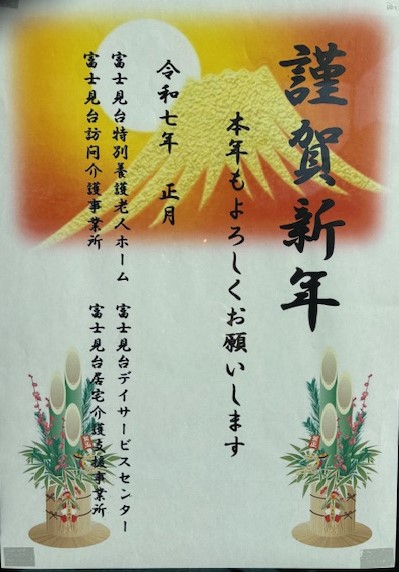 謹賀新年
本年もよろしくお願いします
令和七年　正月
富士見台特別養護老人ホーム
富士見台デイサービスセンター
富士見台訪问介護事業所
富士見台居宅介護支援事業所